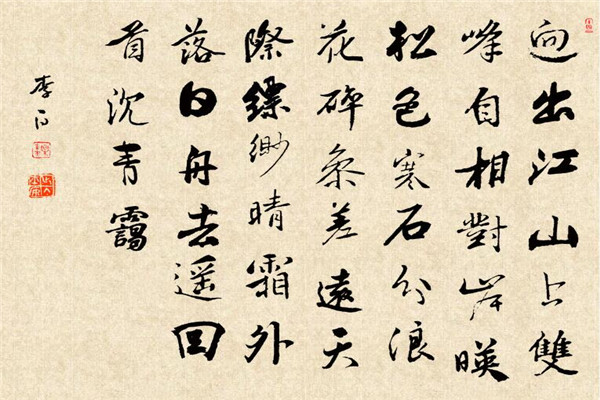 迥出江山上雙
峰自相對岸暎
松色寒石分浪
花碎参差遠天
際縹緲晴霜外
落日舟去遥回
首沉青靄
李